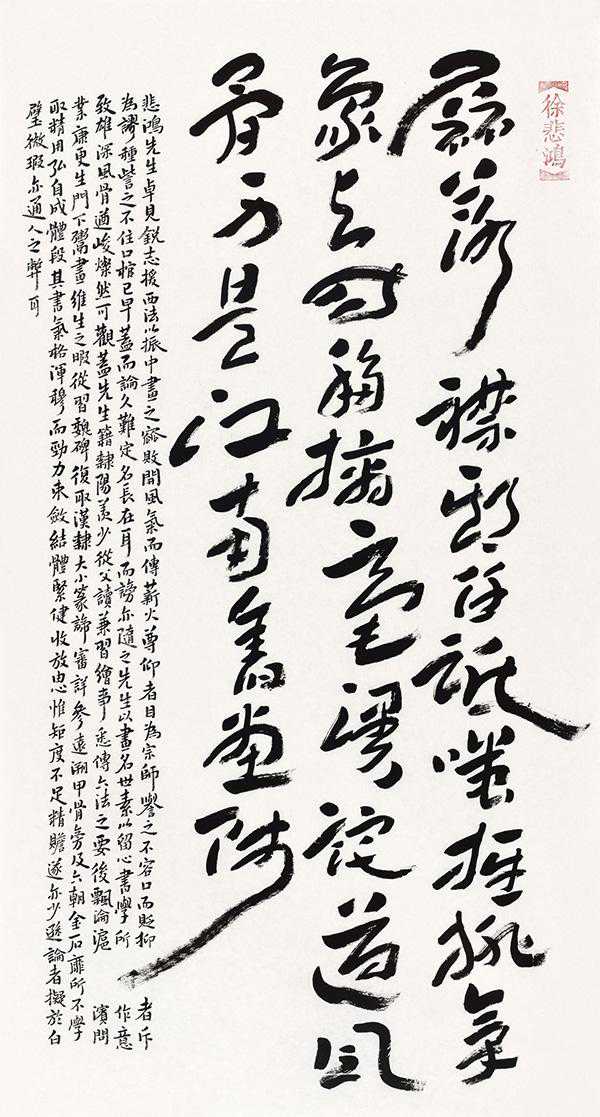 徐悲鴻
磊落襟期任詆嗤推排氣
象與時移摛毫漫詫遒風
骨可是江南舊畫師
悲鴻先生卓見銳志援西法以振中畫之窳敗開風氣而傳薪火尊仰者目為宗師譽之不容口而貶抑者斥
為謬種訾之不住口棺已早蓋而論久難定名長在耳而謗亦隨之先生以畫名世素以留心書學所作意
致雄深風骨遒峻燦然可觀蓋先生籍隸陽羨少從父讀兼習繪事悉傳六法之要後飄淪滬濱問
業康更生門下鬻畫維生之暇從習魏碑復取漢隸大小篆諦審詳參遠溯甲骨旁及六朝金石靡所不學
取精用弘自成體段其書氣格渾穆而勁力束斂結體緊健收放由心惟矩度不足精贍遂亦少遜論者擬於白
璧微瑕亦通人之弊耳